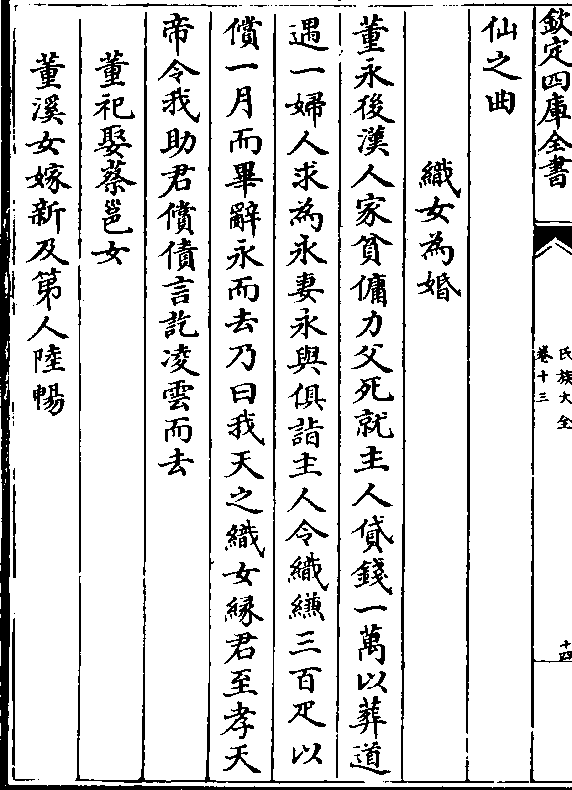 欽定四庫全書
氏族大全
卷十三
十四
仙之曲
織女為婚
董永後漢人家貧傭力父死就主人貸錢一萬以葬道
遇一婦人求為永妻永與俱詣主人令織縑三百疋以
償一月而畢辭永而去乃曰我天之織女緣君至孝天
帝令我助君償債言訖凌雲而去
董祀娶蔡邕女
董溪女嫁新及第人陸暢